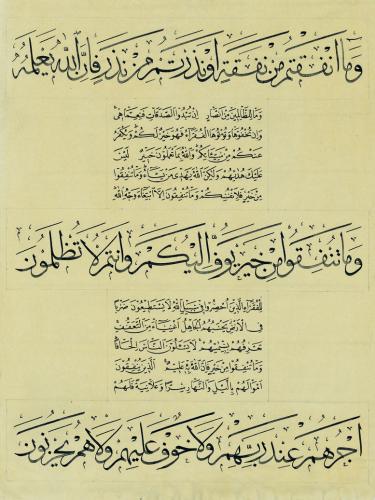 وَمَا أَنْفَقْتُمْ مِنْ نَفَقَةٍ أَوْ نَذَرْتُمْ مِنْ نَذْرٍ فَإِنَّ اللّٰهَ يَعْلَمُهُ
وَمَا لِلظَّالِمِينَ مِنْ أَنْصَارٍ إِنْ تُبْدُوا الصَّدَقَاتِ فَنِعِمَّا هِيَ
وَإِنْ تُخْفُوهَا وَتُؤْتُوهَا الْفُقَرَاءَ فَهُوَ خَيْرٌ لَكُمْ وَيُكَفِّرُ
عَنْكُمْ مِنْ سَيِّئَاتِكُمْ وَاللّٰهُ بِمَا تَعْمَلُونَ خَبِيرٌ لَيْسَ
عَلَيْكَ هُدَاهُمْ وَلٰكِنَّ اللّٰهَ يَهْدِي مَنْ يَشَاءُ وَمَا تُنْفِقُوا
مِنْ خَيْرٍ فَلِأَنْفُسِكُمْ وَمَا تُنْفِقُونَ إِلَّا ابْتِغَاءَ وَجْهِ اللّٰهِ
وَمَا تُنْفِقُوا مِنْ خَيْرٍ يُوَفَّ إِلَيْكُمْ وَأَنْتُمْ لَا تُظْلَمُونَ
لِلْفُقَرَاءِ الَّذِينَ أُحْصِرُوا فِي سَبِيلِ اللّٰهِ لَا يَسْتَطِيعُونَ ضَرْبًا
فِي الْأَرْضِ يَحْسَبُهُمُ الْجَاهِلُ أَغْنِيَاءَ مِنَ التَّعَفُّفِ
تَعْرِفُهُمْ بِسِيمَاهُمْ لَا يَسْأَلُونَ النَّاسَ إِلْحَافًا
وَمَا تُنْفِقُوا مِنْ خَيْرٍ فَإِنَّ اللّٰهَ بِهِ عَلِيمٌ الَّذِينَ يُنْفِقُونَ
أَمْوَالَهُمْ بِاللَّيْلِ وَالنَّهَارِ سِرًّا وَعَلَانِيَةً فَلَهُمْ
أَجْرُهُمْ عِنْدَ رَبِّهِمْ وَلَا خَوْفٌ عَلَيْهِمْ وَلَا هُمْ يَحْزَنُونَ